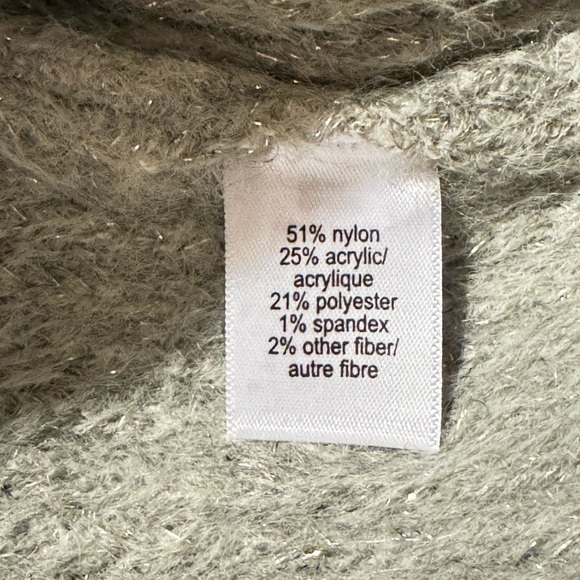 51% nylon
25% acrylic/
acrylique
21% polyester
1% spandex
2% other fiber/
autre fibre